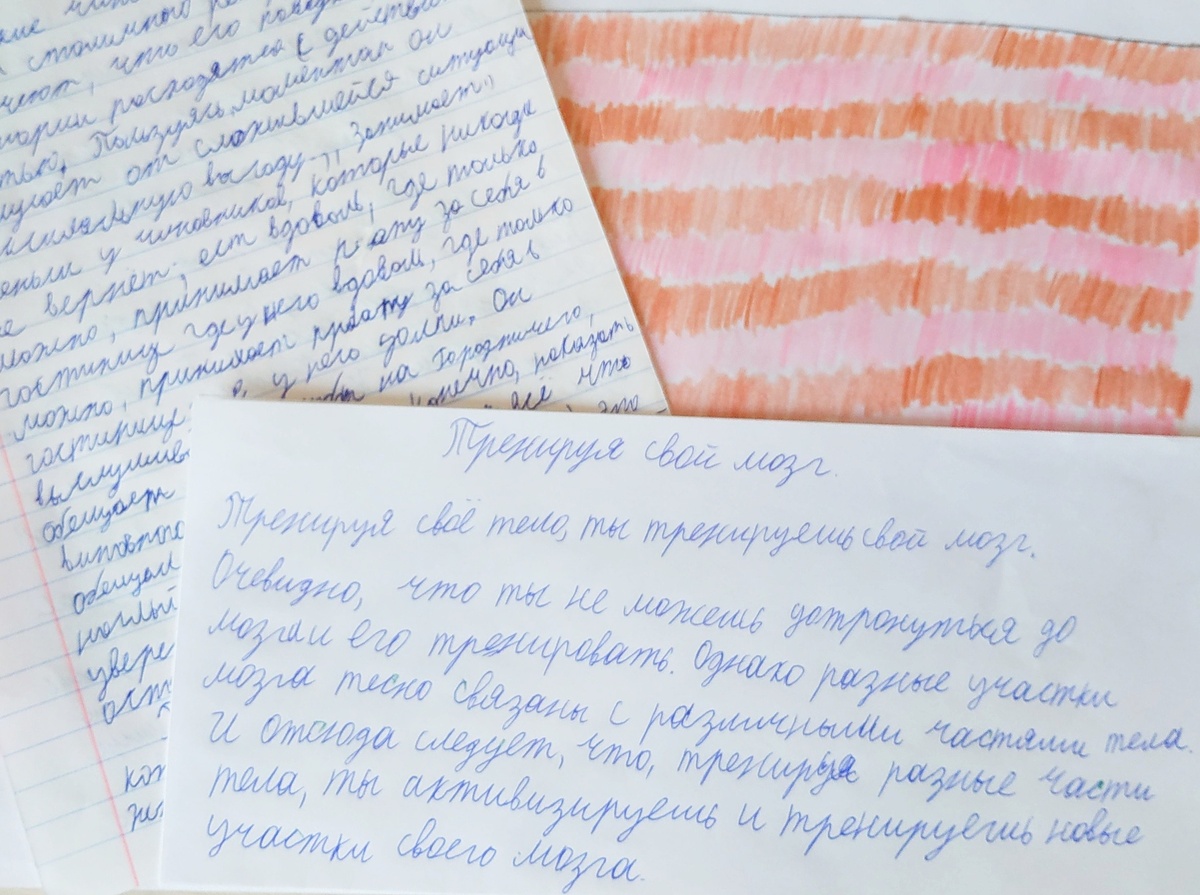 кие чин
столичного
что его повед
мории расходятся с действи
Пользуясь моментом он
от сложившейся ситуации
выгоду. „Занимает"
у чиновников, которые никогда
не вернёт; ест вдоволь, где только
можно, принимает плату за себя в
гостиниц где у него вдоволь, где только
можно, принимает плату за себя в
гостиниц у него долги. Он
на Городничего,
конечно, показать
всё что
обещает
увере
ост
Тренируя свой мозг.
Тренируя своё тело, ты тренируешь свой мозг.
Очевидно, что ты не можешь дотронуться до
мозга и его тренировать. Однако разные участки
мозга тесно связаны с различными частями тела.
И отсюда следует, что, тренируя разные части
тела, ты активизируешь и тренируешь новые
участки своего мозга.